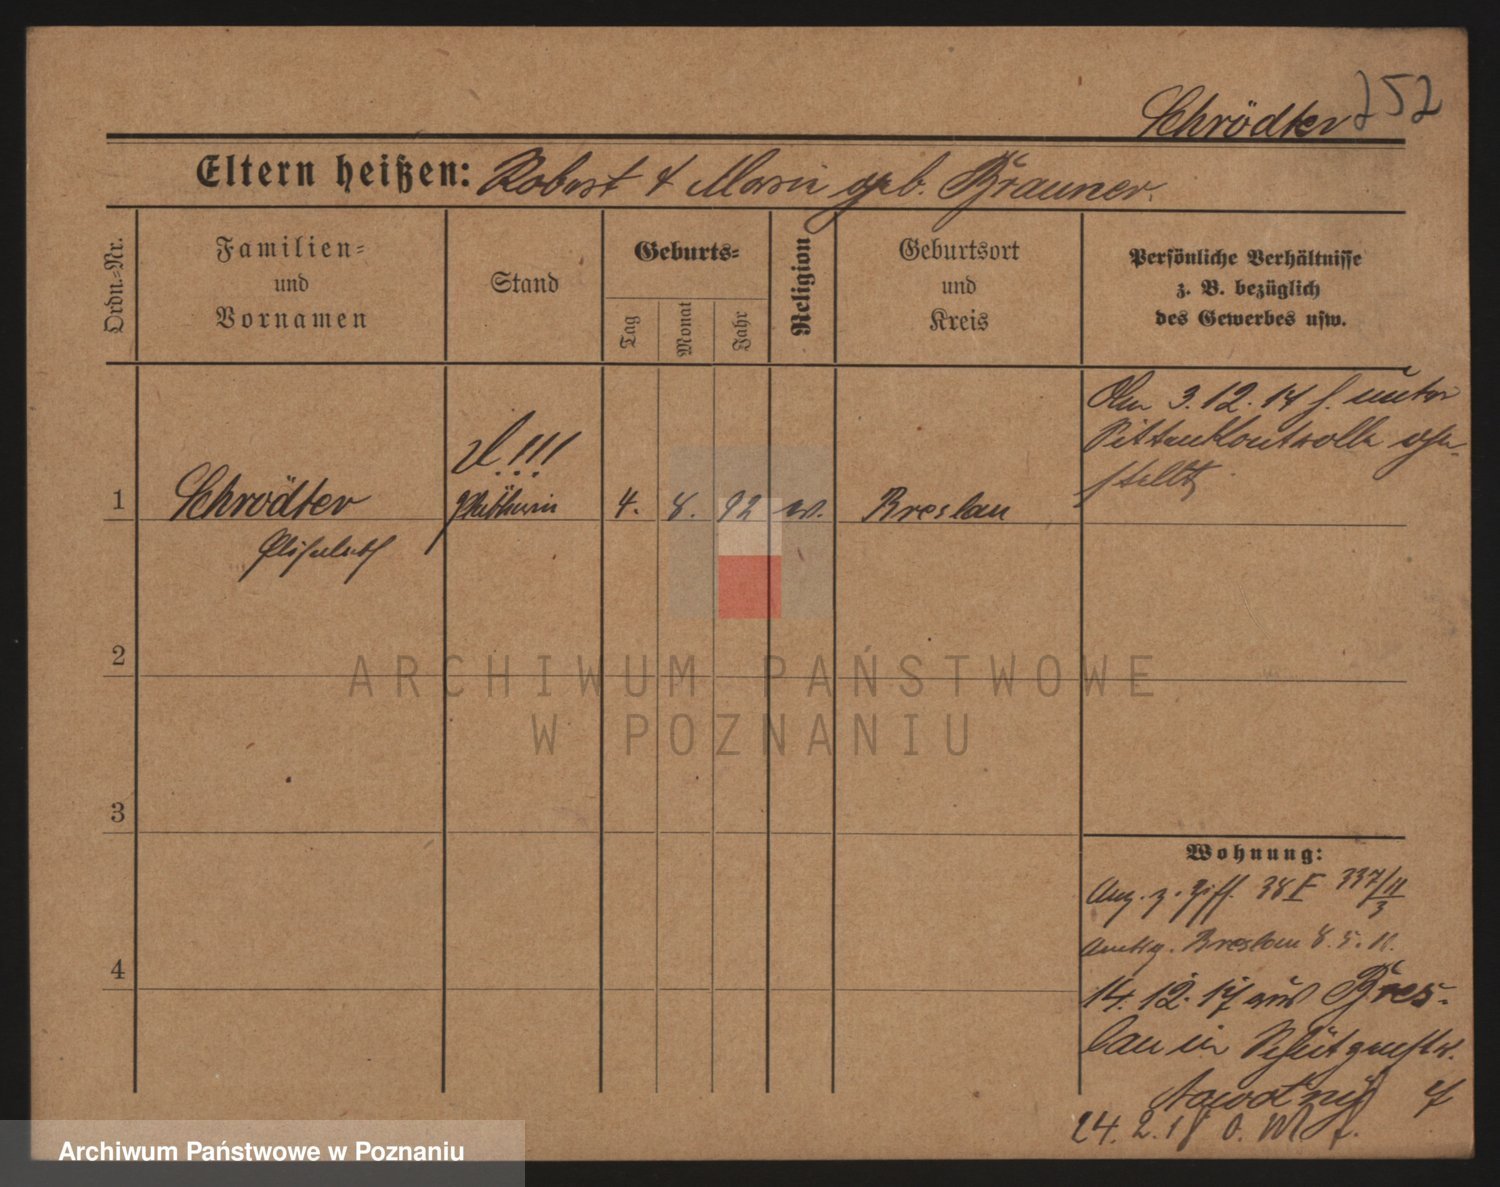 Schrödter 252
Eltern heißen: Robert & Marie geb. Brauner.
Ordn.-Nr.
Familien-
und
Vornamen
Stand
Geburts-
Tag
Monat
Jahr
Religion
Geburtsort
und
Kreis
Persönliche Verhältnisse
z. B. bezüglich
des Gewerbes usw.
Am 3.12.17 f. unter
Sittenkontrolle ge-
stellt
!!!
1 Schrödter 4. 8. 92 ev. Breslau
Elisabeth
2
3
4
Wohnung:
Anz. z. Ziff. 38 F 337/11/3
Breslau 8.5.11.
14.12.17 aus Bres-
lau in Schützenstr.
Nawotny
24.2.18 o. M
ARCHIWUM PAŃSTWOWE
W POZNANIU
Archiwum Państwowe w Poznaniu